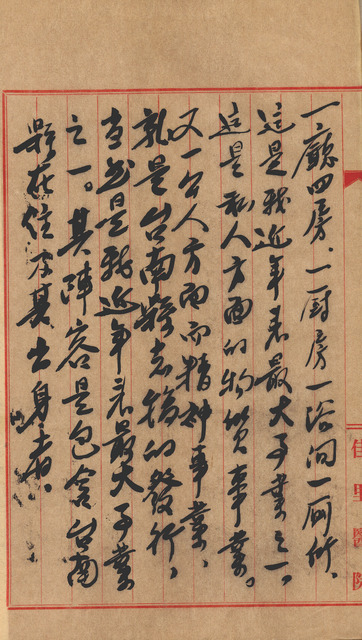 一廳四房、一厨房一浴间一厠所、
這是我近年来最大事業之一。
這是私人方面的物質事業。
又一公人方面而精神事業、
就是台南縣志稿的發行，
当然是我近年来最大事業
之一。其陣容是包含台南
縣在住及其出身者。
佳里醫院